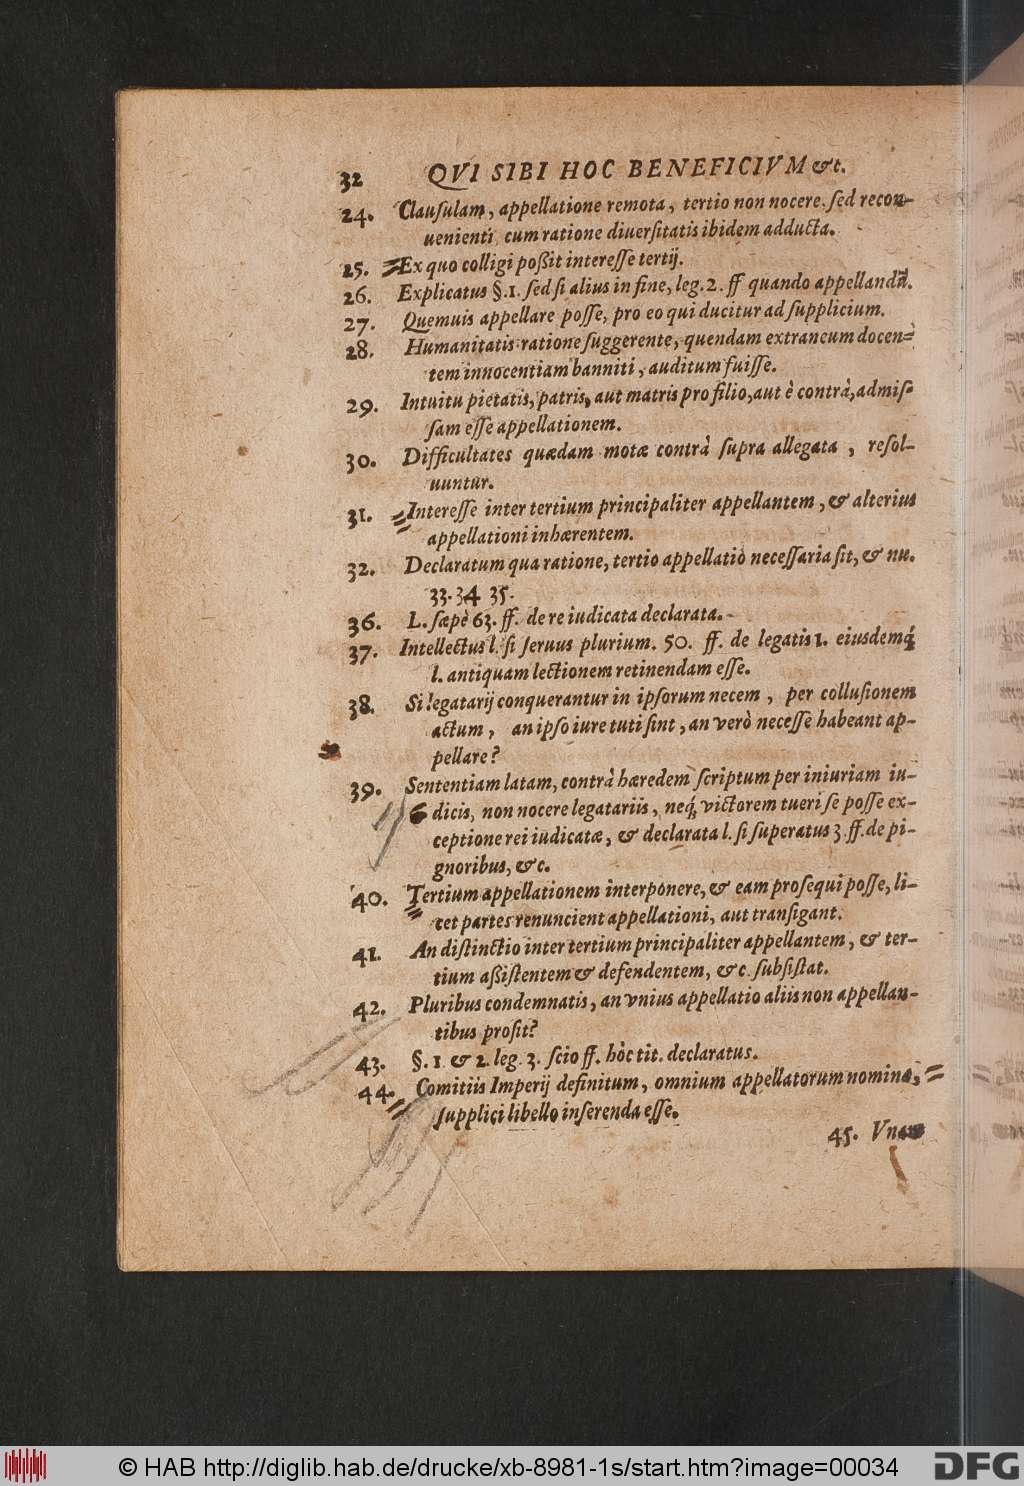 32 QVI SIBI HOC BENEFICIVM &t.
24. Clauſulam, appellatione remota, tertio non nocere. ſed recon-
uenienti cum ratione diuerſitatis ibidem adducta.
25. Ex quo colligi poßit intereſſe tertij.
26. Explicatus §.1. ſed ſi alius in fine, leg. 2. ff quando appellandū.
27. Quemuis appellare poſſe, pro eo qui ducitur ad ſupplicium.
28. Humanitatis ratione ſuggerente, quendam extraneum docen-
tem innocentiam banniti, auditum fuiſſe.
29. Intuitu pietatis, patris, aut matris pro filio, aut è contrà, admiſ-
ſam eſſe appellationem.
30. Difficultates quædam motæ contrà ſupra allegata, reſol-
uuntur.
31. Intereſſe inter tertium principaliter appellantem, & alterius
appellationi inhærentem.
32. Declaratum qua ratione, tertio appellatio neceſſaria ſit, & nu.
33. 34 35.
36. L. ſæpè 63. ff. de re iudicata declarata.
37. Intellectus l. ſi ſeruus plurium. 50. ff. de legatis 1. eiusdemq́
l. antiquam lectionem retinendam eſſe.
38. Si legatarij conquerantur in ipſorum necem, per colluſionem
actum, an ipſo iure tuti ſint, an verò neceſſe habeant ap-
pellare?
39. Sententiam latam, contrà hæredem ſcriptum per iniuriam iu-
dicis, non nocere legatariis, neq́; victorem tueri ſe poſſe ex-
ceptione rei iudicatæ, & declarata l. ſi ſuperatus 3. ff. de pi-
gnoribus, &c.
40. Tertium appellationem interponere, & eam proſequi poſſe, li-
cet partes renuncient appellationi, aut tranſigant.
41. An diſtinctio inter tertium principaliter appellantem, & ter-
tium aßiſtentem & defendentem, &c. ſubſiſtat.
42. Pluribus condemnatis, an vnius appellatio aliis non appellan-
tibus proſit?
43. §. 1. & 2. leg. 3. ſcio ff. hòc tit. declaratus.
44. Comitiis Imperij definitum, omnium appellatorum nomina,
ſupplici libello inſerenda eſſe.
45. Vnam
© HAB http://diglib.hab.de/drucke/xb-8981-1s/start.htm?image=00034
DFG